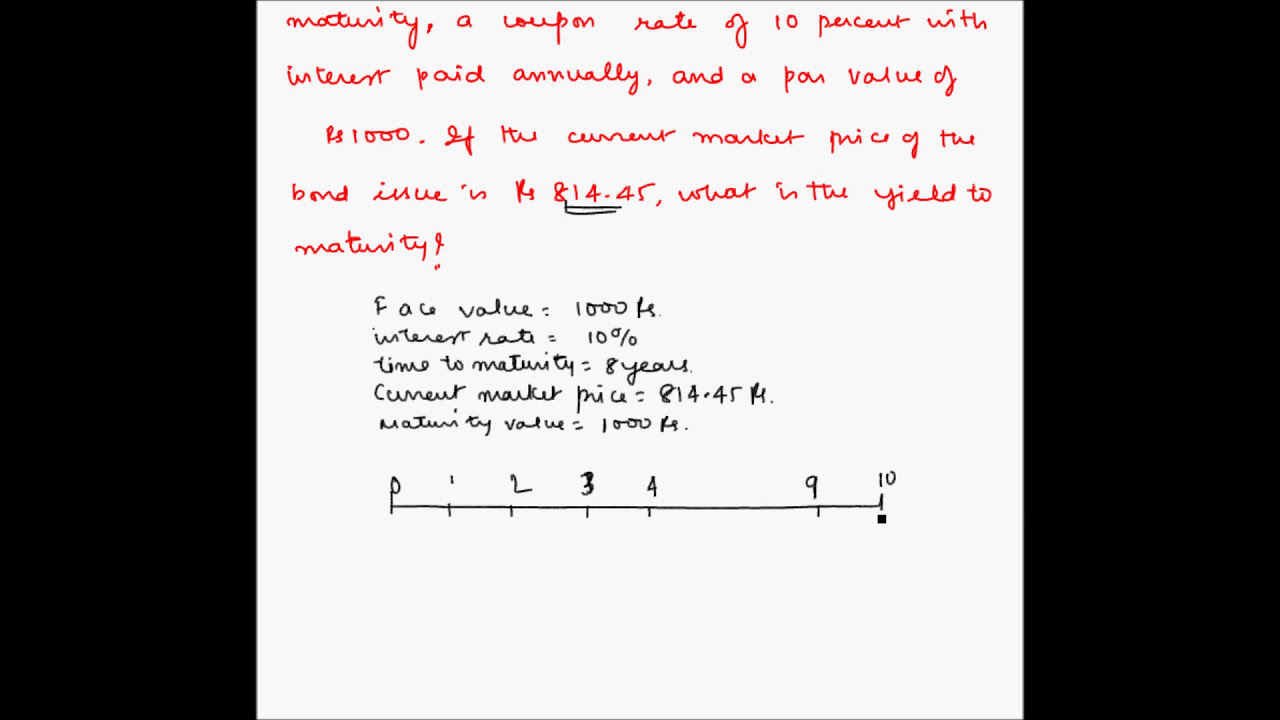 maturity, a coupon rate of 10 percent with
interest paid annually, and a par value of
Rs 1000. If the current market price of the
bond issue is Rs 814.45, what is the yield to
maturity?
Face value = 1000 Rs.
interest rate = 10%
time to maturity = 8 years.
Current market price = 814.45 Rs.
Maturity value = 1000 Rs.
0 1 2 3 4 9 10